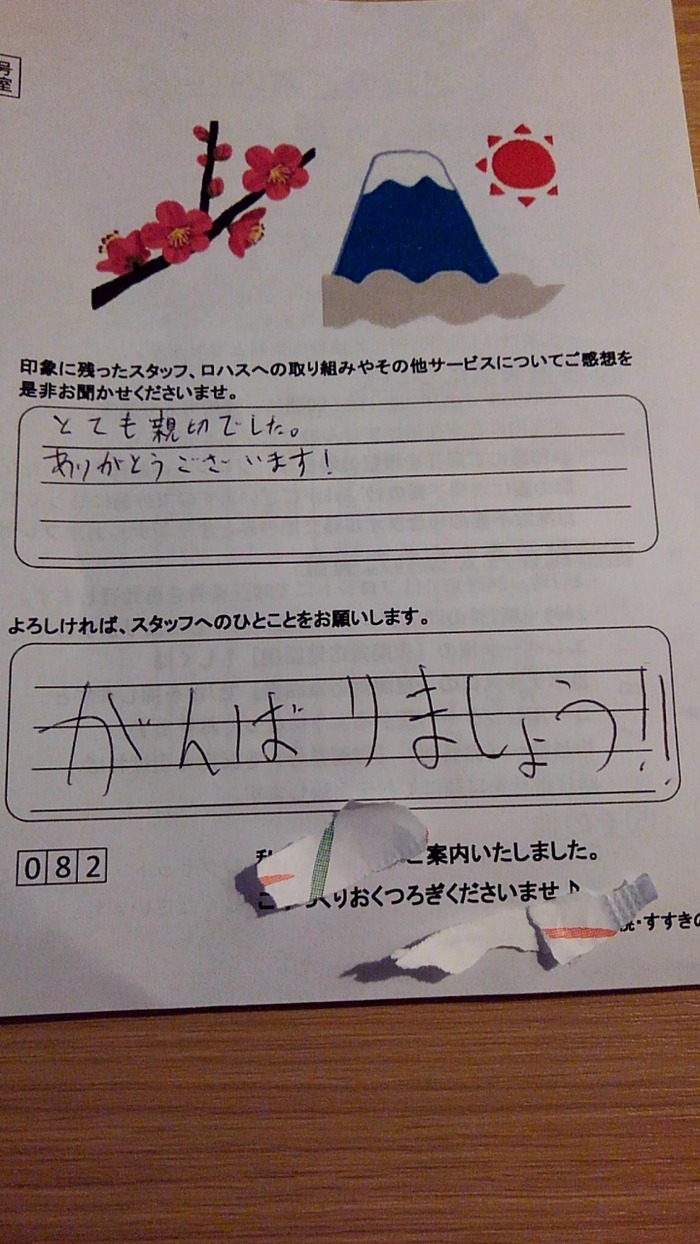 号
室
印象に残ったスタッフ、ロハスへの取り組みやその他サービスについてご感想を
是非お聞かせくださいませ。
とても親切でした。
ありがとうございます!
よろしければ、スタッフへのひとことをお願いします。
がんばりましょう!!
082
ご案内いたしました。
くりおくつろぎくださいませ♪
・すすきの